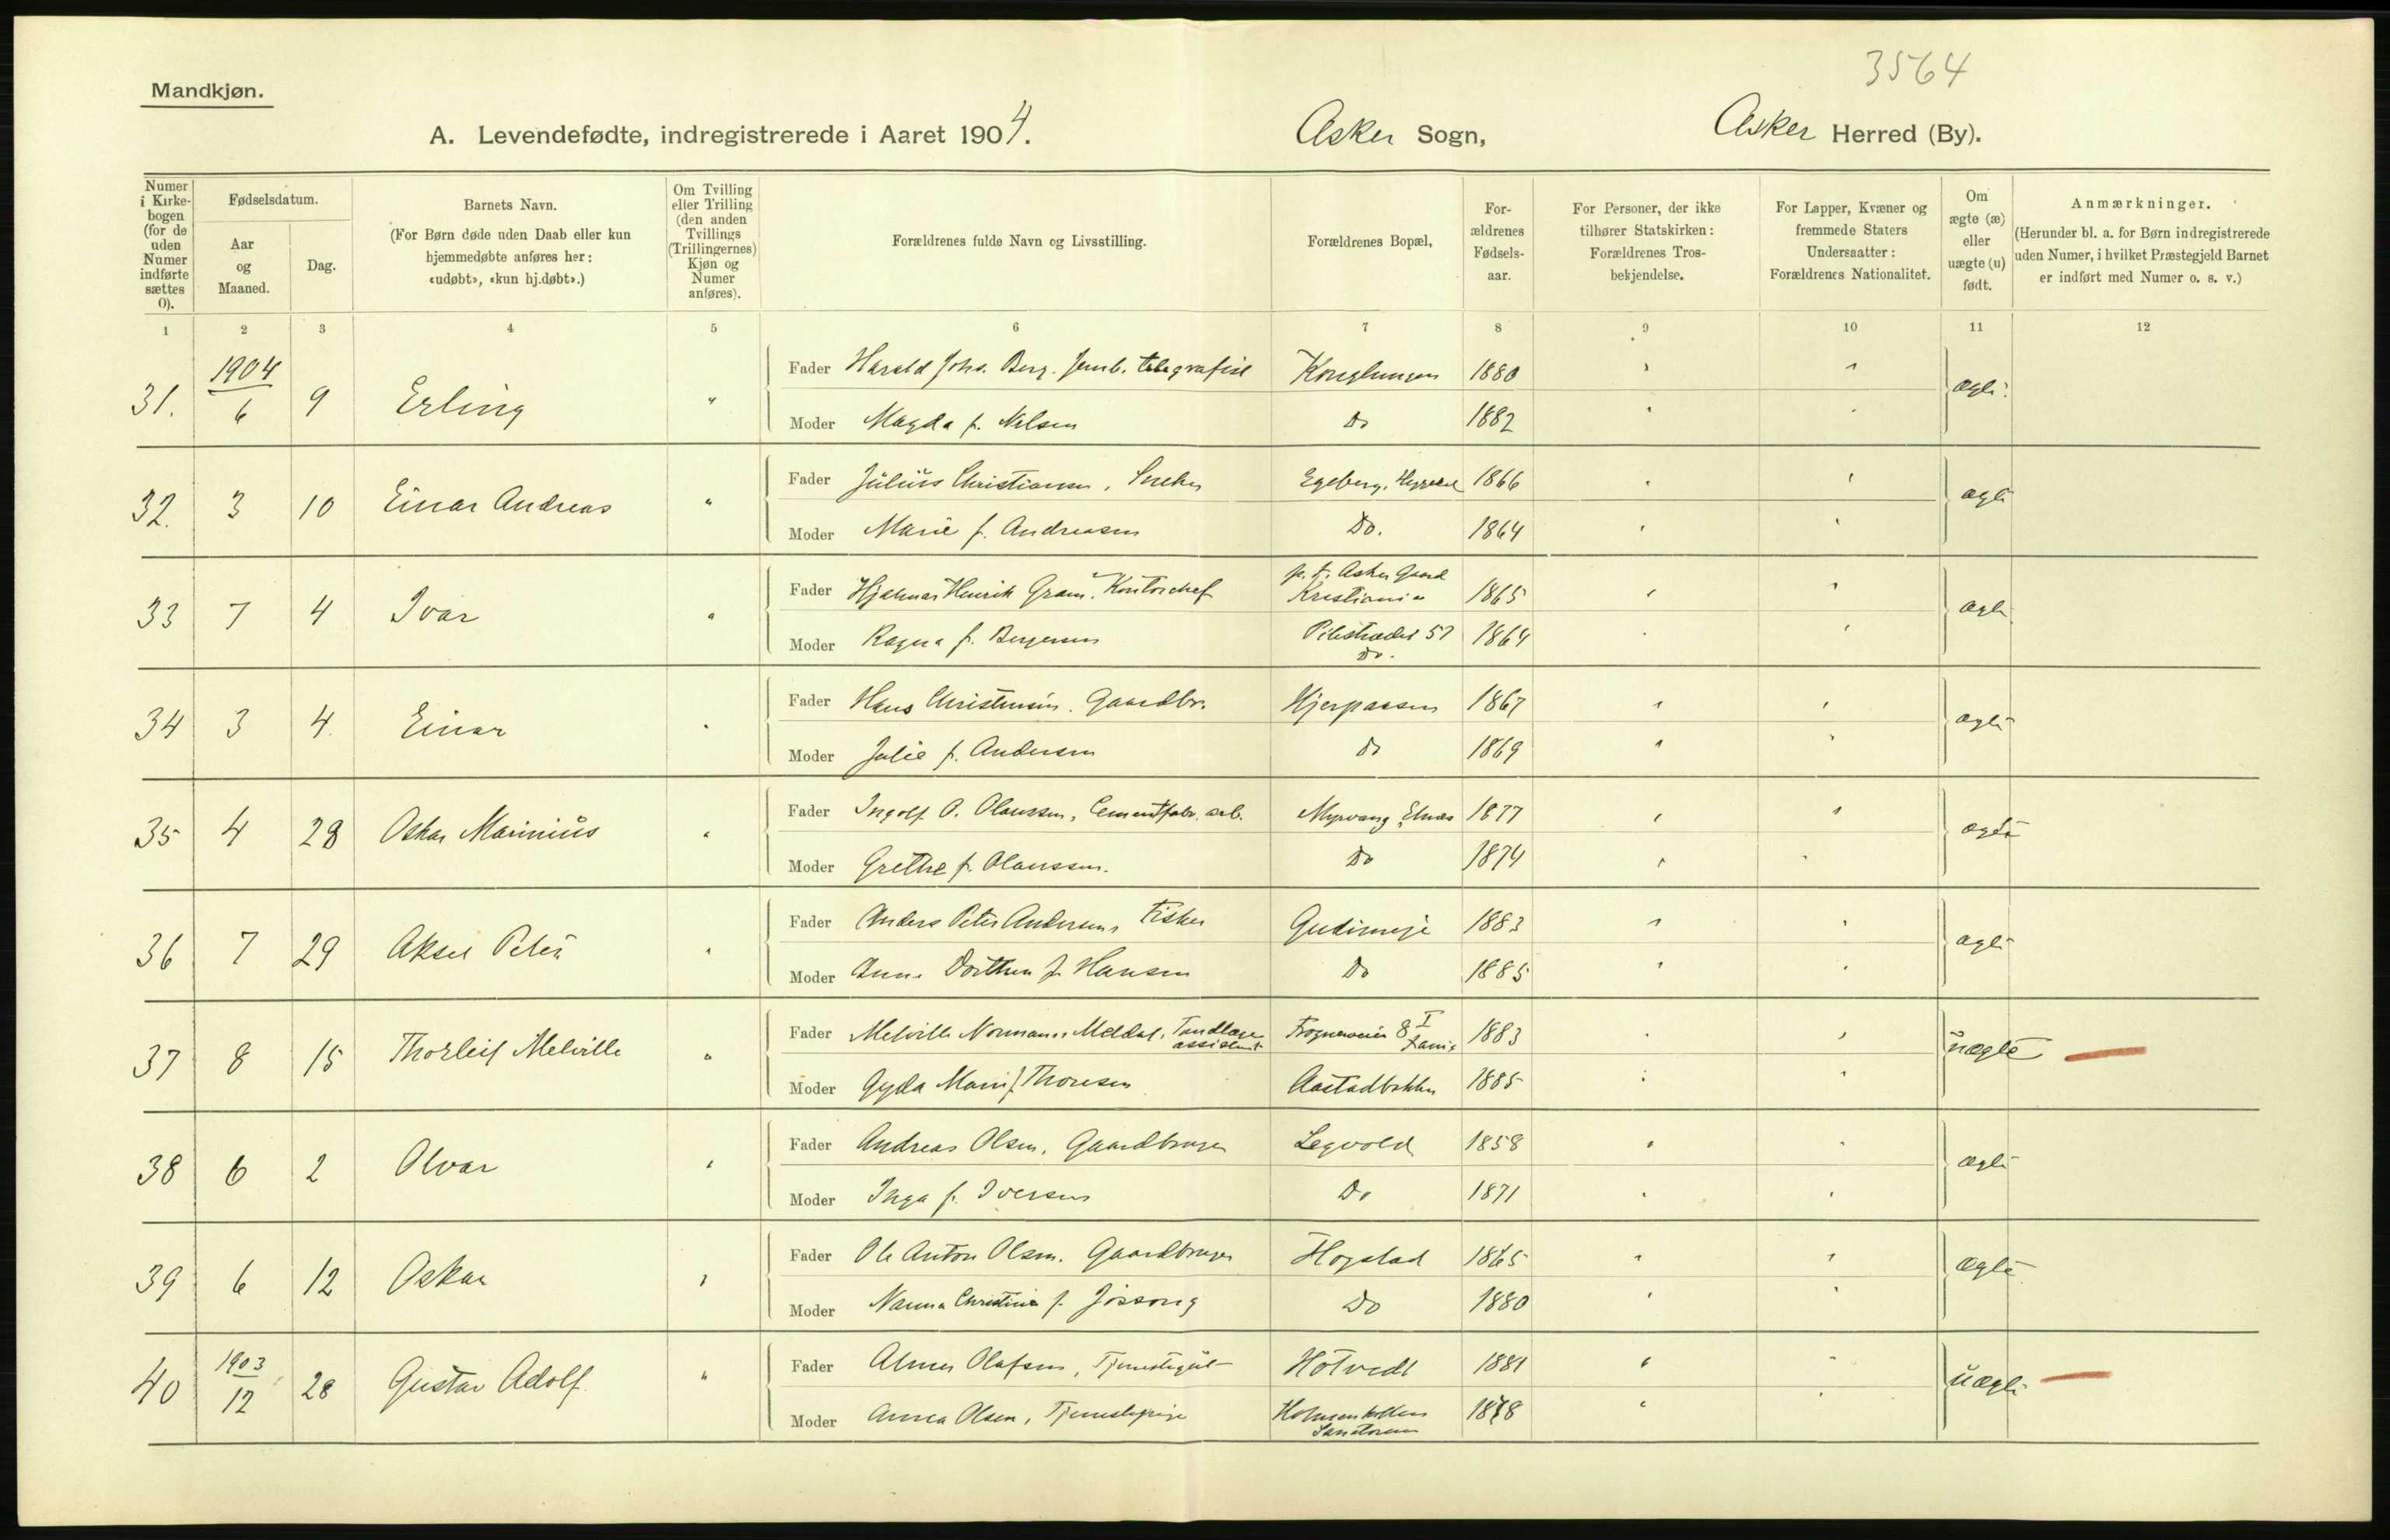 3564
Mandkjøn.
A. Levendefødte, indregistrerede i Aaret 1904. Asker Sogn, Asker Herred (By).
Numer i Kirke-bogen (for de uden Numer indførte sættes 0).
Fødselsdatum.
Aar og Maaned.
Dag.
Barnets Navn.
(For Børn døde uden Daab eller kun hjemmedøbte anføres her: «udøbt», «kun hj.døbt».)
Om Tvilling eller Trilling (den anden Tvillings (Trillingernes) Kjøn og Numer anføres).
Forældrenes fulde Navn og Livsstilling.
Forældrenes Bopæl,
For-ældrenes Fødsels-aar.
For Personer, der ikke tilhører Statskirken: Forældrenes Tros-bekjendelse.
For Lapper, Kvæner og fremmede Staters Undersaatter: Forældrenes Nationalitet.
Om ægte (æ) eller uægte (u) født.
Anmærkninger.
(Herunder bl. a. for Børn indregistrerede uden Numer, i hvilket Præstegjeld Barnet er indført med Numer o. s. v.)
1 2 3 4 5 6 7 8 9 10 11 12
31. 1904 6 9 Erling " Fader Harald Johs. Berg. Jernb. telegrafist Konglungen 1880 ægte
Moder Magda f. Nilsen Do 1882
32. 3 10 Einar Andreas " Fader Julius Christiansen, Snekker Egeberg, 1866 ægte
Moder Marie f. Andreasen Do. 1864
33 7 4 Ivar " Fader Hjalmar Henrik Gram, Kontorchef p. t. Asker Gaard Kristiania 1865 ægte
Moder Ragna f. Bergersen Pilestrædet 57 Do. 1864
34 3 4. Einar " Fader Hans Christensen. Gaardbr. Hjerpaasen 1867 ægte
Moder Julie f. Andersen Do 1869
35 4 28 Oskar Marinius " Fader Ingolf O. Olaussen, Cementfabr. arb. Myrvang, Elnæs 1877 ægte
Moder Grethe f. Olaussen. Do 1874
36 7 29 Aksel Peter " Fader Anders Peter Andersen, Fisker 1883 ægte
Moder Anne Dorthea f. Hansen Do 1885
37 8 15 Thorleif Melville " Fader Melville Normann Meldal, Tandlæge assistent Frogneveien 8 I 1883 uægte
Moder Gyda Marie f. Thoresen Aastadbakken 1885
38 6 2 Olvar " Fader Andreas Olsen, Gaardbruger Legvold 1858 ægte
Moder Inga f. Iversen Do 1871
39 6 12 Oskar " Fader Ole Anton Olsen. Gaardbruger Hogstad 1865 ægte
Moder Nanna Christine f. Jossong Do 1880
40 1903 12 28 Gustav Adolf " Fader Olafsen, Tjenestegut Hotvedt 1881 uægte
Moder Anna Olsen, Tjenestepige Holmenkollen Sanatorium 1878